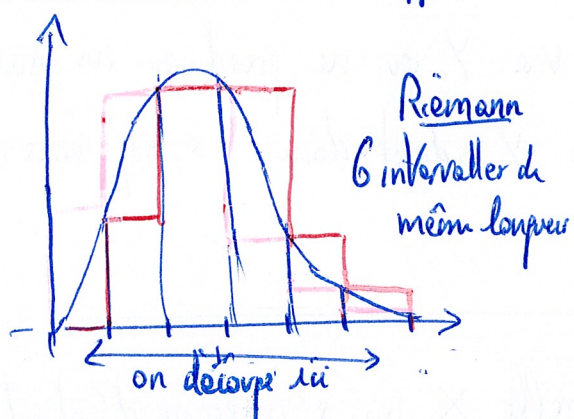 Riemann
6 intervalles de
même longueur
on découpe ici